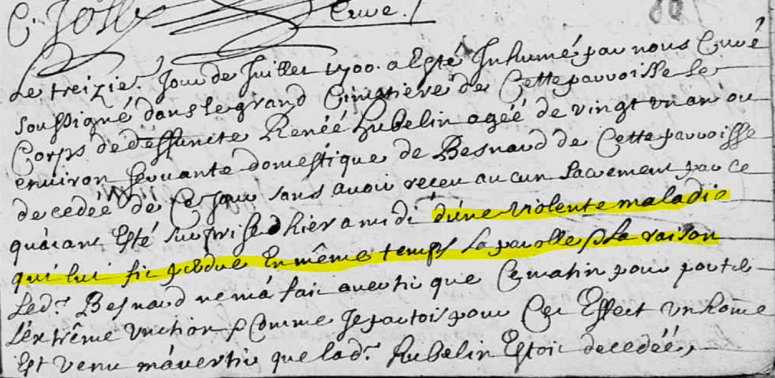 C. Joss Curé.
Le treizie. Jour de Juillet 1700. a esté Inhumé par nous Curé
soussigné dans le grand Cimatière de Cette parroisse le
Corps de deffuncte Renéé Hubelin agéé de vingt un an ou
environ servante domestique de Besnard de Cette parroisse
decedéé de Ce Jour sans avoir receu aucun Sacrement par ce
quáiant Esté surprise d'hier a midi d'une violente maladie
qui lui fit perdre En même temps La parolle & La raison
Led. Besnard ne má fait avertir que Ce matin pour porter
L'extrême unction & Comme Je partois pour Cet Effect un home
Est venu m'avertir que lad. Hubelin Estoit decedéé,